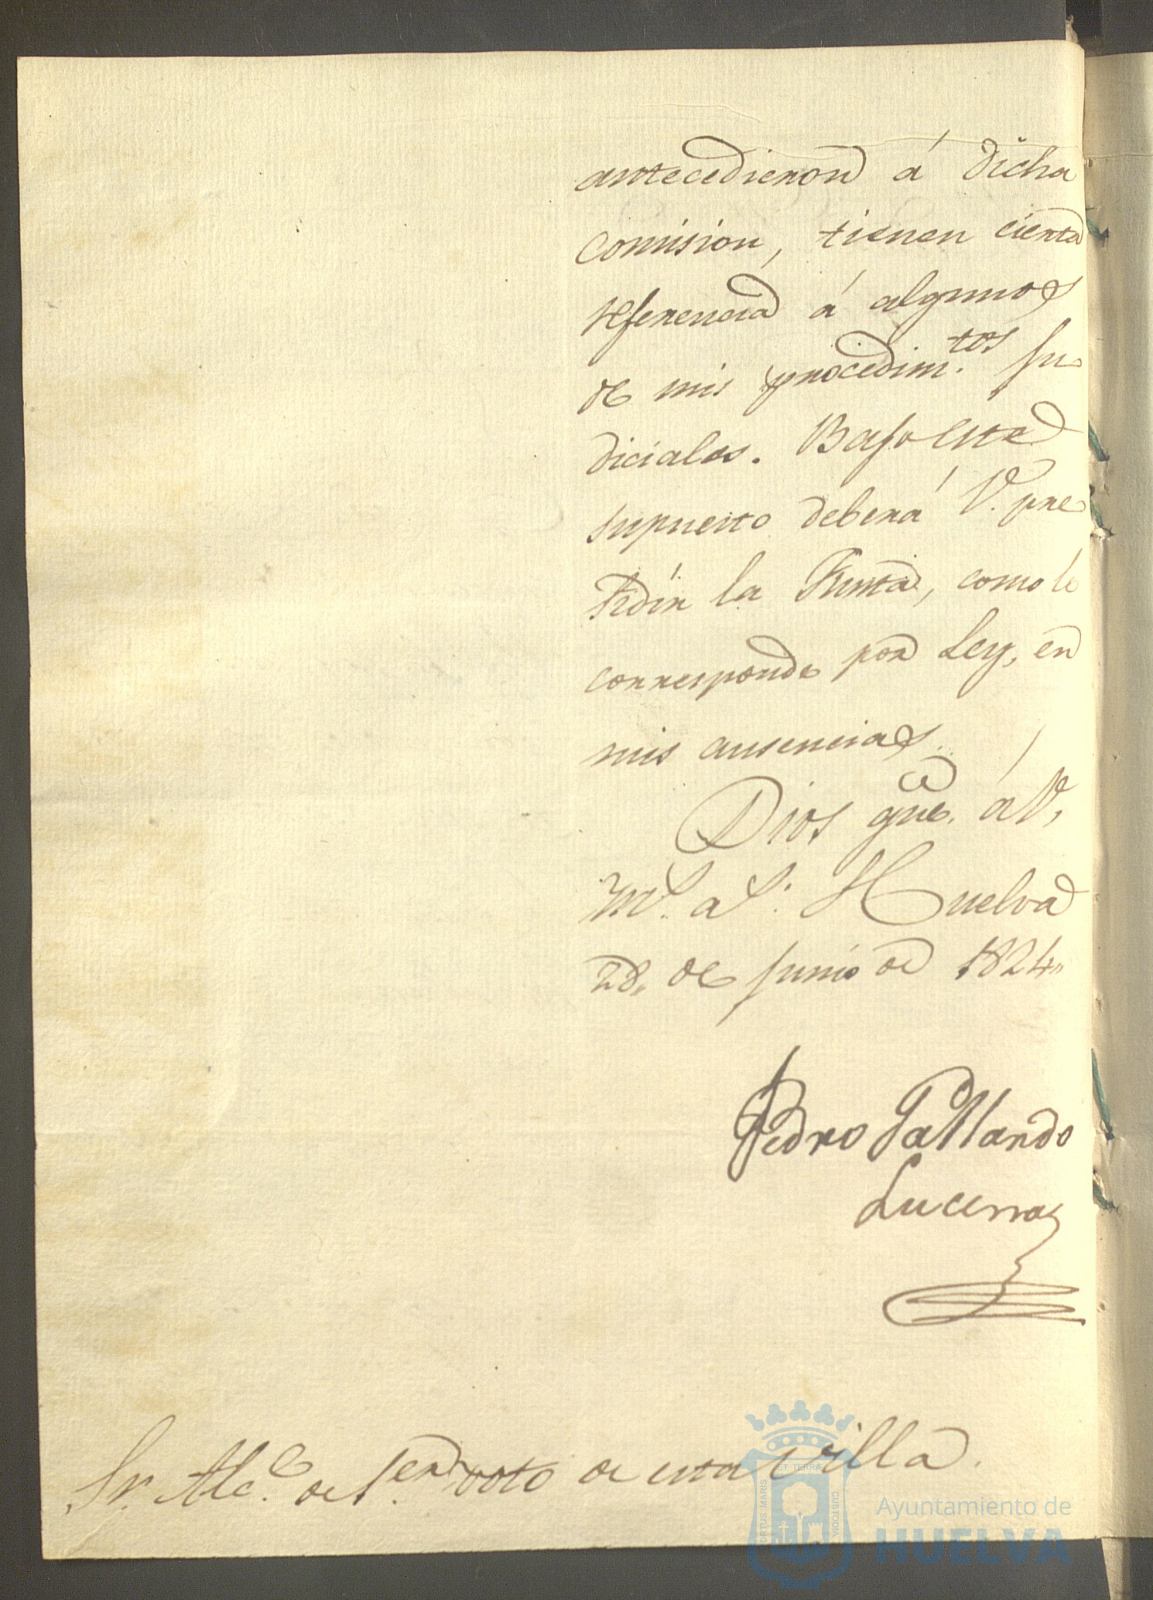 antecedieron á dicha
comision, tienen cierta
referencia á algunos
de mis procedim.tos ju
diciales. Bajo este
supuesto deberá V. pre
sidir la Junta, como le
corresponde por Ley, en
mis ausencias.
Dios gue. á V.
m.s a.s Huelva
28, de Junio de 1824,,
Pedro Gallardo
Lucena
Sr. Alc.e de 1.er voto de esta villa.
PORTUS MARIS
ET TERRAE
CUSTODIA
Ayuntamiento de
HUELVA